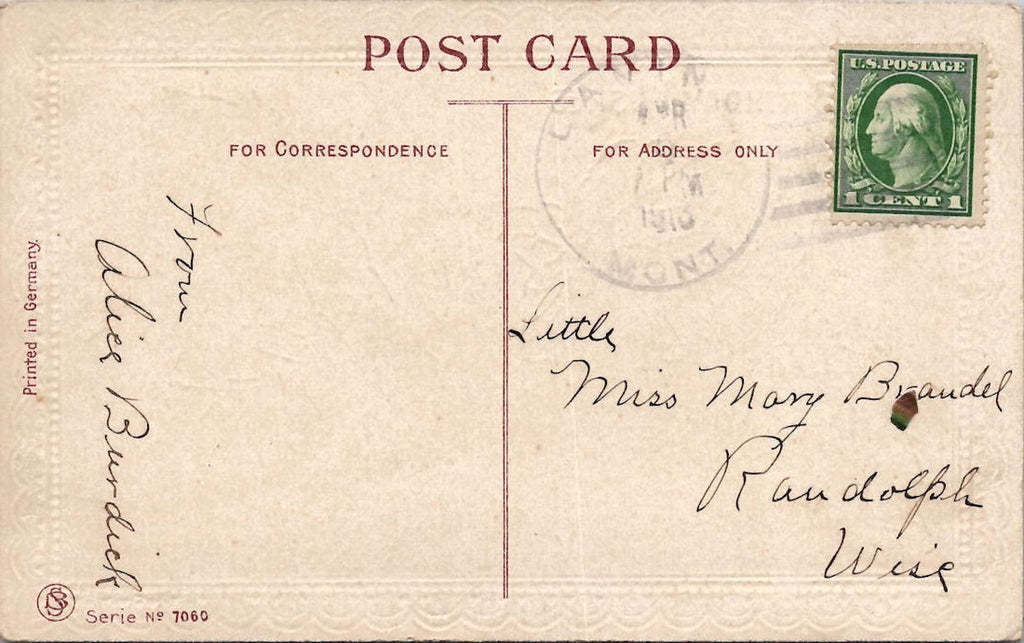 POST CARD
FOR CORRESPONDENCE
FOR ADDRESS ONLY
U.S. POSTAGE
1 CENT 1
PM
MONT.
From
Alice Burdick
Little
Miss Mary Brandel
Randolph
Wisc
Printed in Germany.
Serie Nº 7060